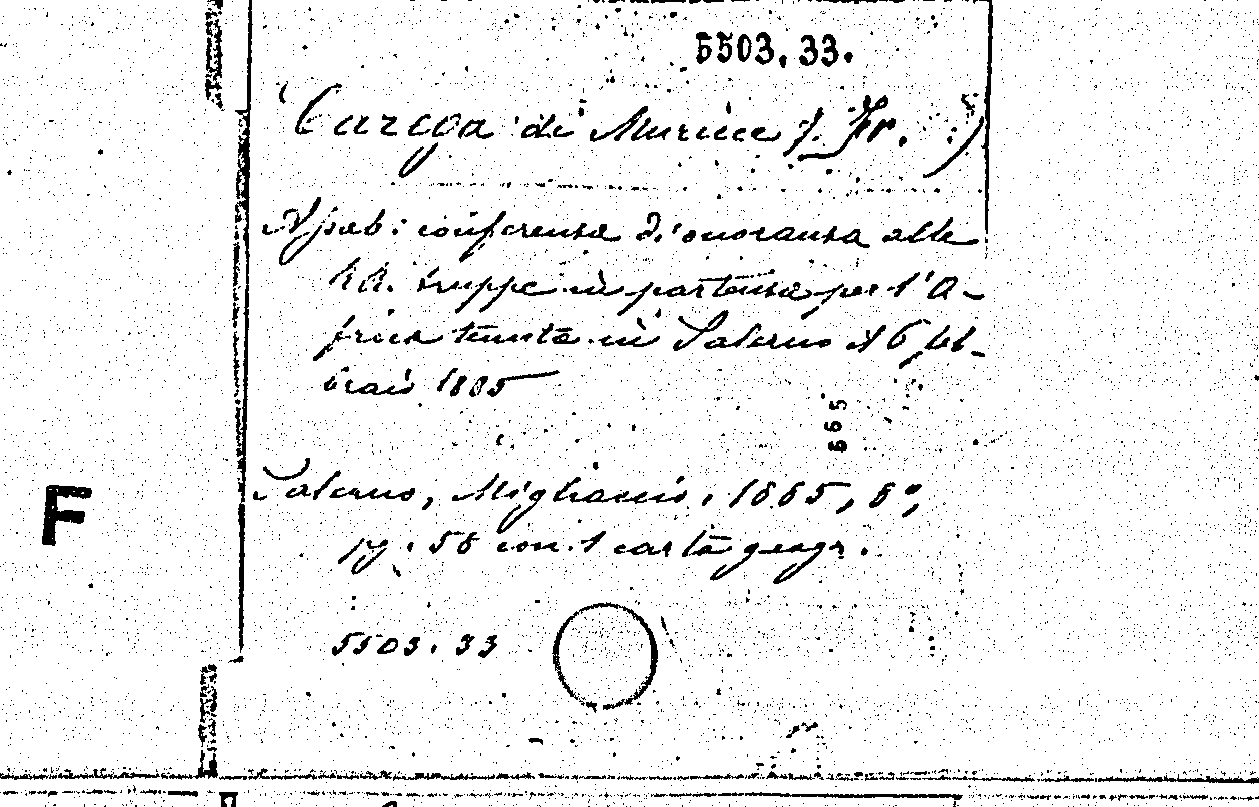 5503.33.
Carega di Muricce f. Fr. .)
Assab: conferenza d'onoranza alle
RR. truppe in partenza per l'A-
frica tenuta in Salerno il 6 feb-
braio 1885
565
Salerno, Migliaccio, 1885, 8°,
pg. 58 con 1 carta geogr.
F
5503.33